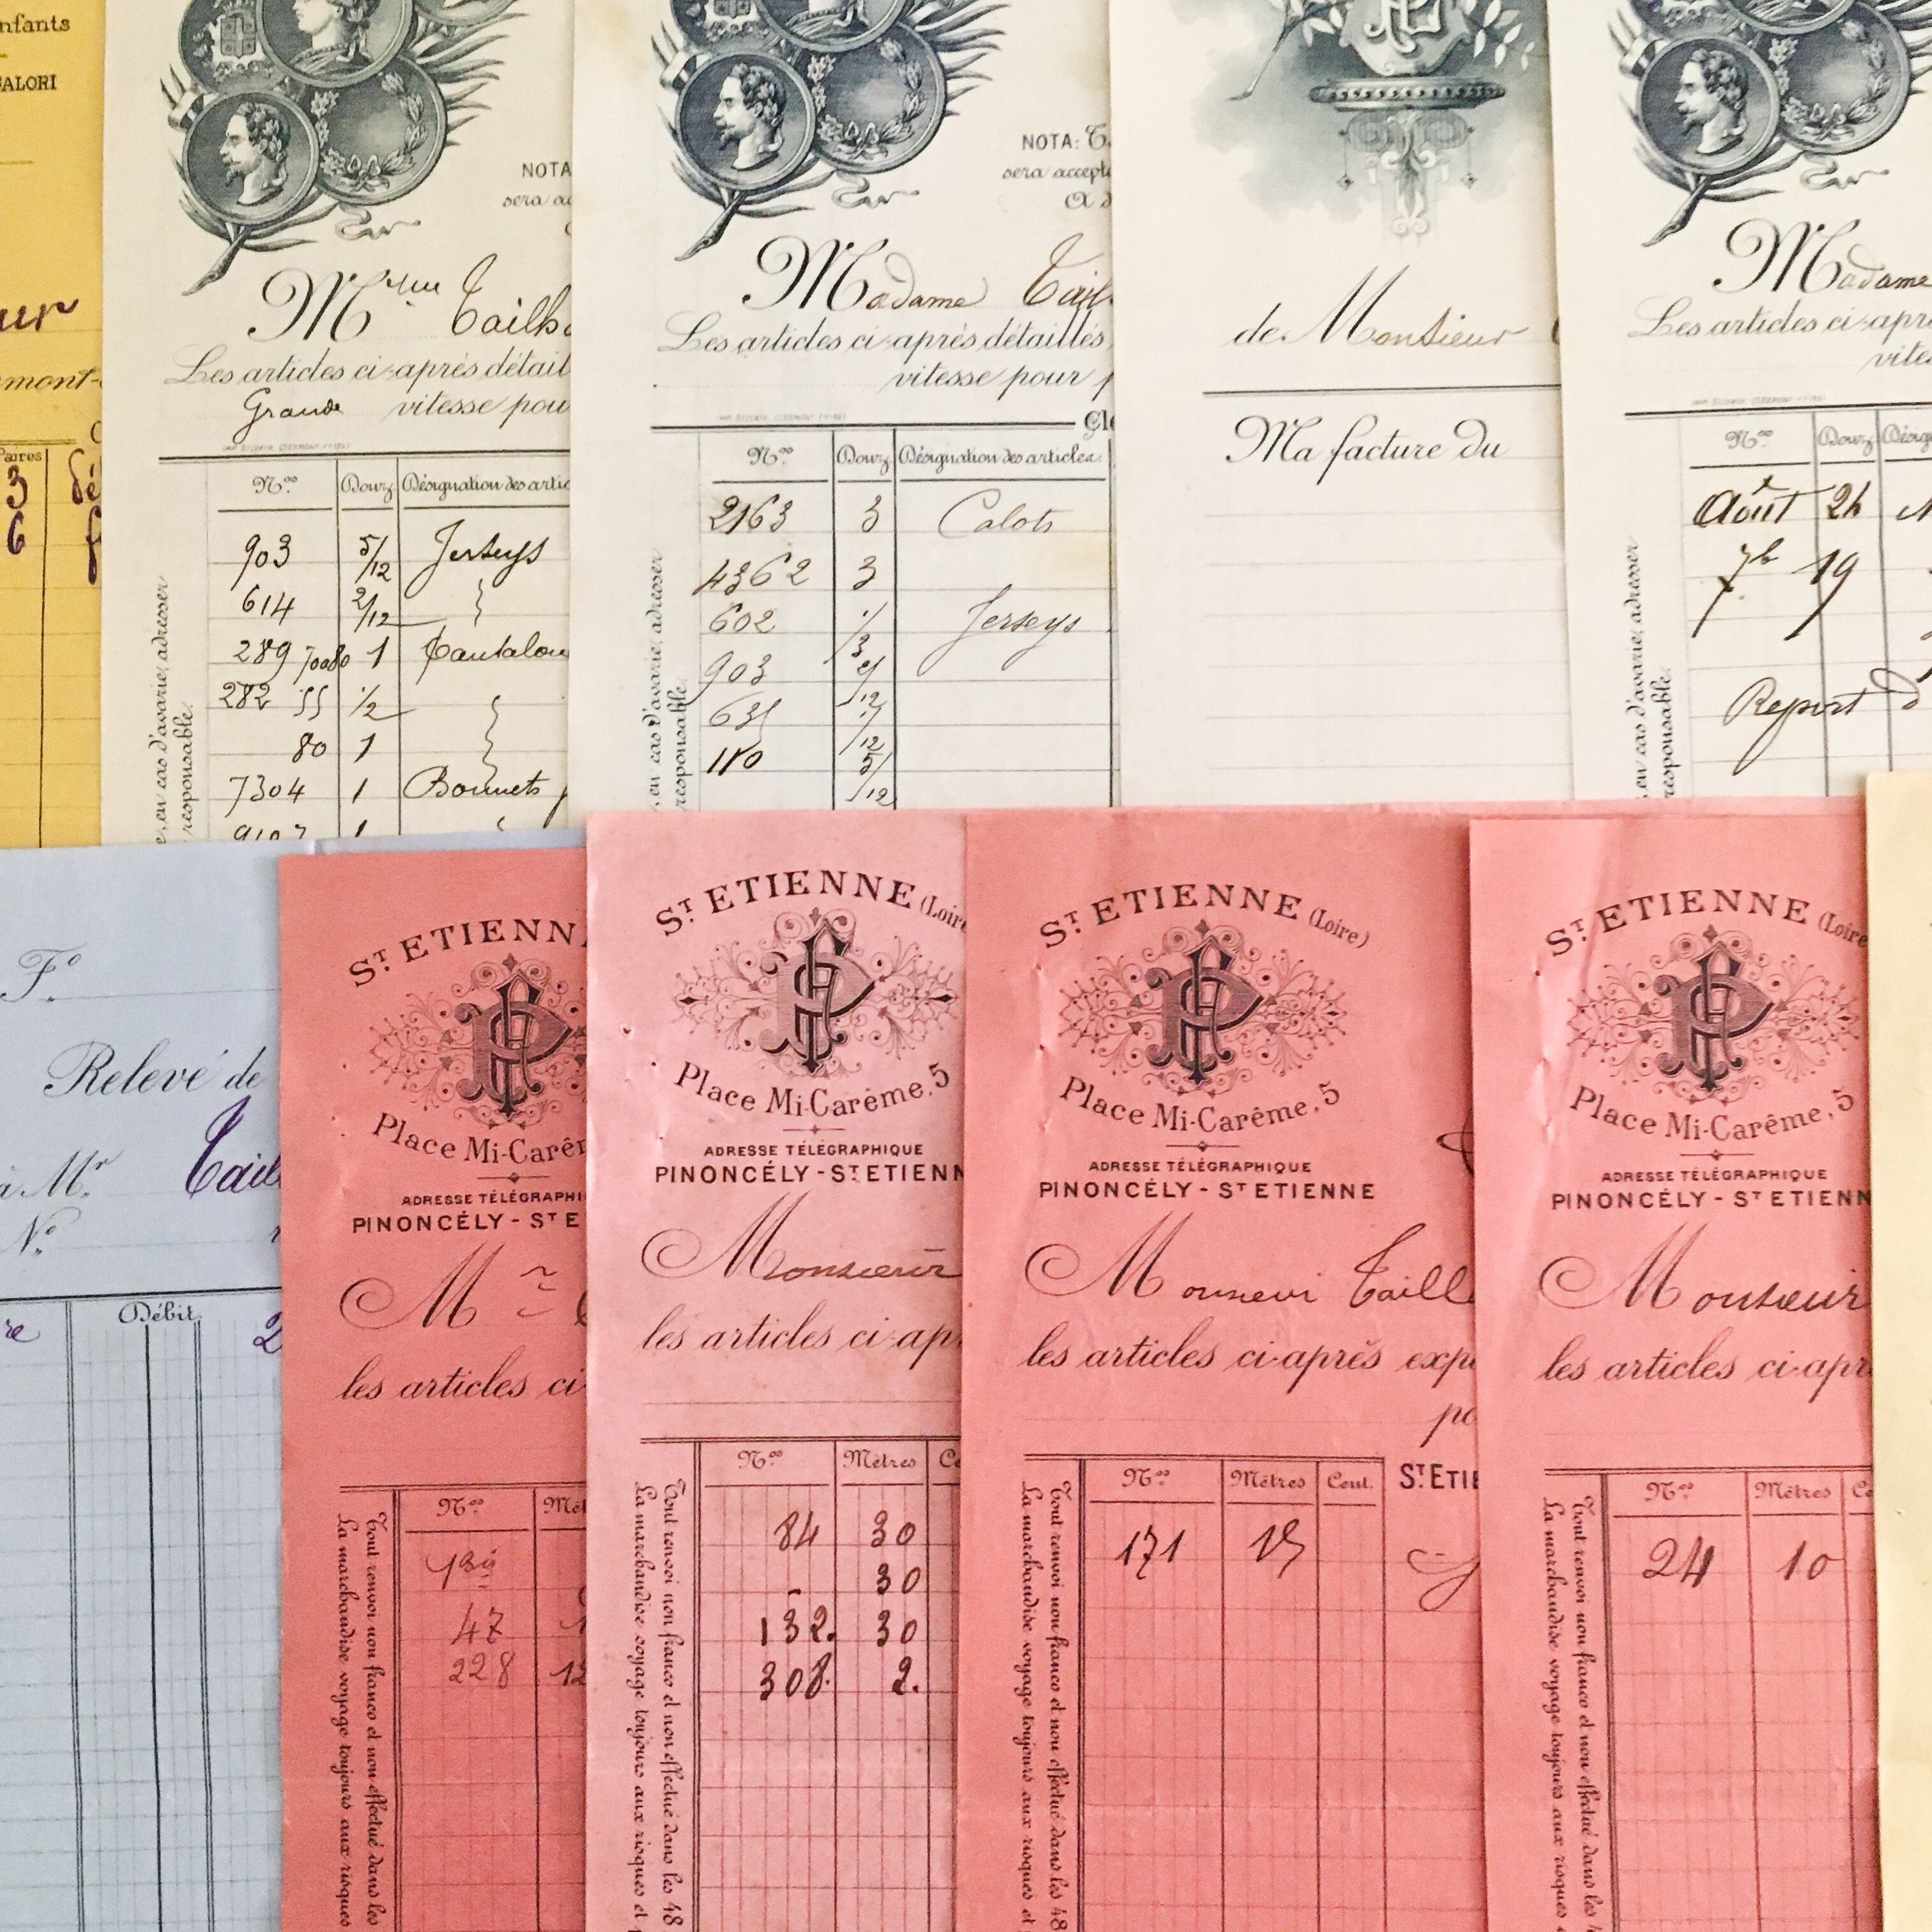 nfants
ALORI
ur
mont-
Paires
3
6
NOTA
sera ac
M
Les articles ci-après détail
Grande vitesse pou
IMP. SILVAIN CLERMONT-FD
Nos Douz. Désignation des artic
903 5/12 Jerseys
614 2/12
289 1 Pantalon
282 55 1/2
80 1
7304 1 Bonnets
, en cas d'avarie, adresser
responsable.
NOTA: T
sera accepté
Madame Tail
Les articles ci-après détaillés
vitesse pour
Cle
Nos Douz. Désignation des articles
2163 3 Calots
4362 3
602 1/3 Jerseys
903
631
110 5/12
, en cas d'avarie, adresser
responsable.
de Monsieur
Ma facture du
Madame
Les articles ci-apr
vite
Nos Douz. Désig
Août 24
7b 19
Report d
, en cas d'avarie, adresser
responsable.
Fo
Relevé de
à Mr. Tail
No
Débit
re 2
ST ETIENN
Place Mi-Carê
ADRESSE TÉLÉGRAPHI
PINONCÉLY - ST E
M
les articles ci-
Nos Mèt
47
228 12
Tout renvoi non franco et non effectué dans les
La marchandise voyage toujours aux risques
ST ETIENNE (Loire
Place Mi-Carême, 5
ADRESSE TÉLÉGRAPHIQUE
PINONCÉLY - ST ETIENN
Monsieur
les articles ci-ap
Nos Mètres Ce
84 30
- 30
132. 30
308. 2.
Tout renvoi non franco et non effectué dans les 48
La marchandise voyage toujours aux risques et
ST ETIENNE (Loire)
Place Mi-Carême, 5
ADRESSE TÉLÉGRAPHIQUE
PINONCÉLY - ST ETIENNE
Monsieur Taill
les articles ci-après expé
po
Nos Mètres Cent. ST ETIE
171 15
Tout renvoi non franco et non effectué dans les 48
La marchandise voyage toujours aux risques et
ST ETIENNE (Loire
Place Mi-Carême, 5
ADRESSE TÉLÉGRAPHIQUE
PINONCÉLY - ST ETIENN
Monsieur
les articles ci-apr
Nos Mètres Ce
24 10
Tout renvoi non franco et non effectué dans les 4
La marchandise voyage toujours aux risques e